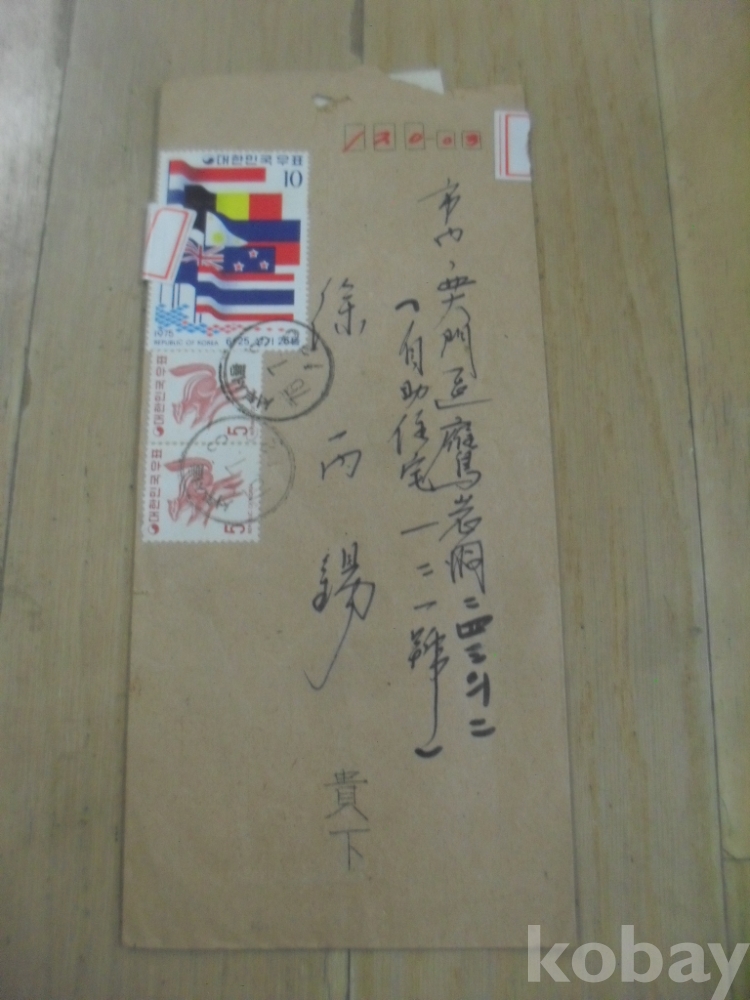 120-03
市內、西大門區鷹岩洞二四三의二
(自助住宅一二一號)
徐丙錫 貴下
대한민국우표
10
1975
REPUBLIC OF KOREA
대한민국우표
5
대한민국우표
5
kobay